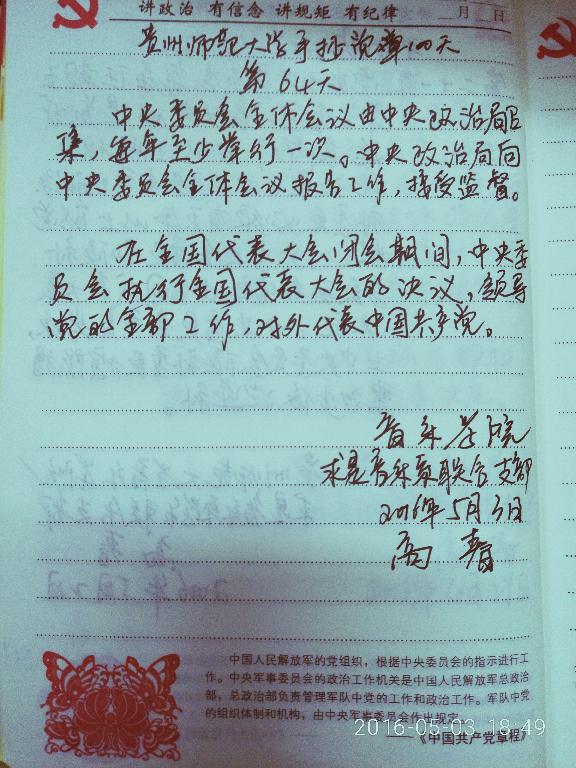 讲政治 有信念 讲规矩 有纪律
月 日
贵州师范大学手抄党章100天
第64天
中央委员会全体会议由中央政治局召
集，每年至少举行一次。中央政治局向
中央委员会全体会议报告工作，接受监督。
在全国代表大会闭会期间，中央委
员会执行全国代表大会的决议，领导
党的全部工作，对外代表中国共产党。
音乐学院
求是音乐系联合支部
2016年5月3日
高春
中国人民解放军的党组织，根据中央委员会的指示进行工
作。中央军事委员会的政治工作机关是中国人民解放军总政治
部，总政治部负责管理军队中党的工作和政治工作。军队中党
的组织体制和机构，由中央军事委员会作出规定。
2016-05-03 18:49
——《中国共产党章程》